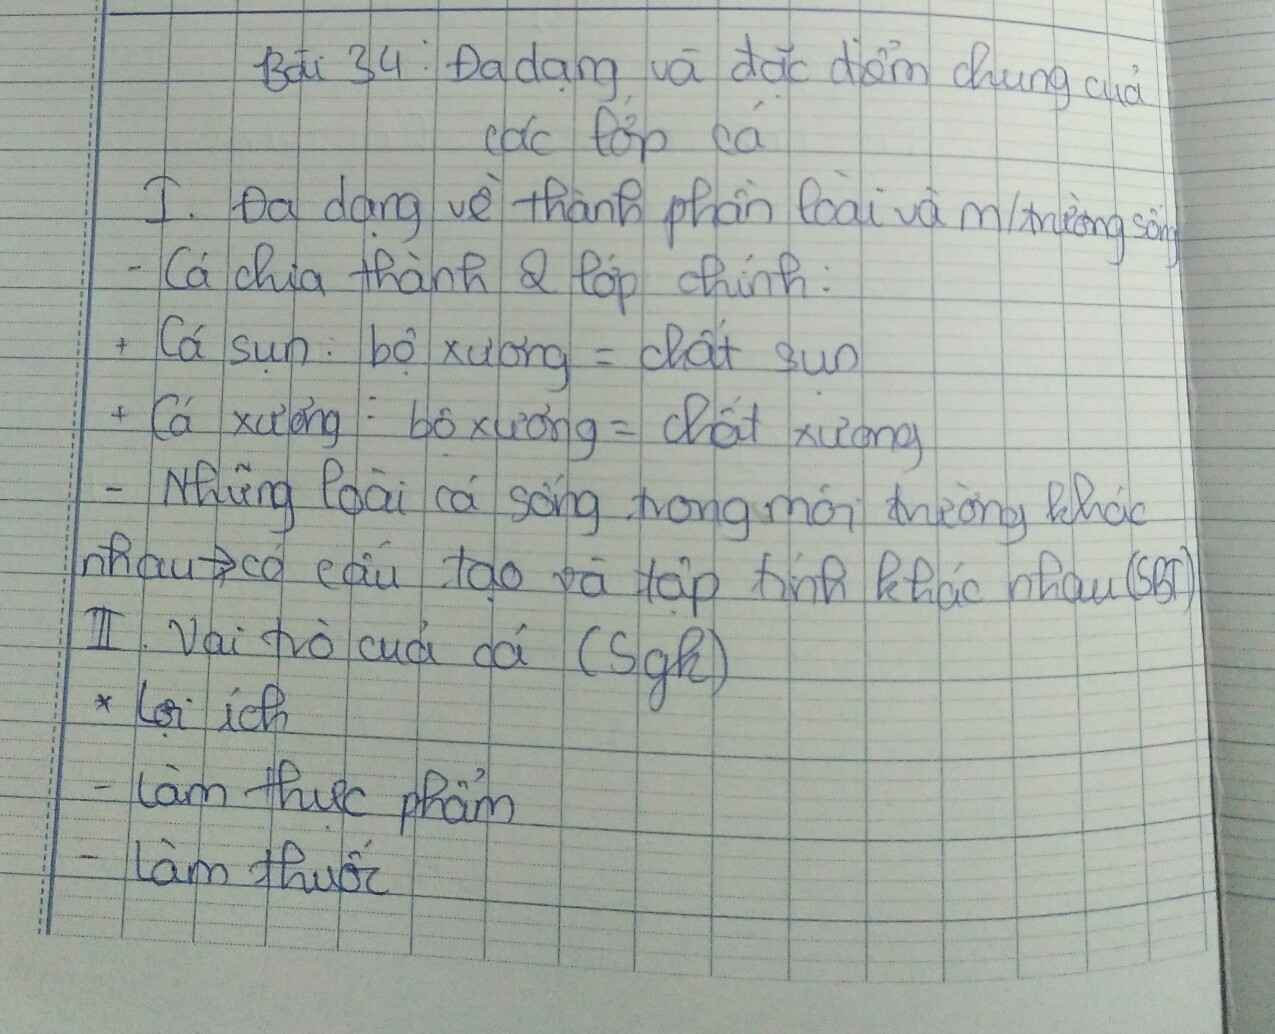 Bài 34: Đa dạng và đặc điểm chung của
các lớp cá
I. Đa dạng về thành phần loài và m/trường sống
- Cá chia thành 2 lớp chính:
+ Cá sụn: bộ xương = chất sụn
+ Cá xương: bộ xương = chất xương
- Những loài cá sống trong môi trường khác
nhau → có cấu tạo và tập tính khác nhau (SBT)
II. Vai trò của cá (Sgk)
* Lợi ích
- Làm thực phẩm
- Làm thuốc